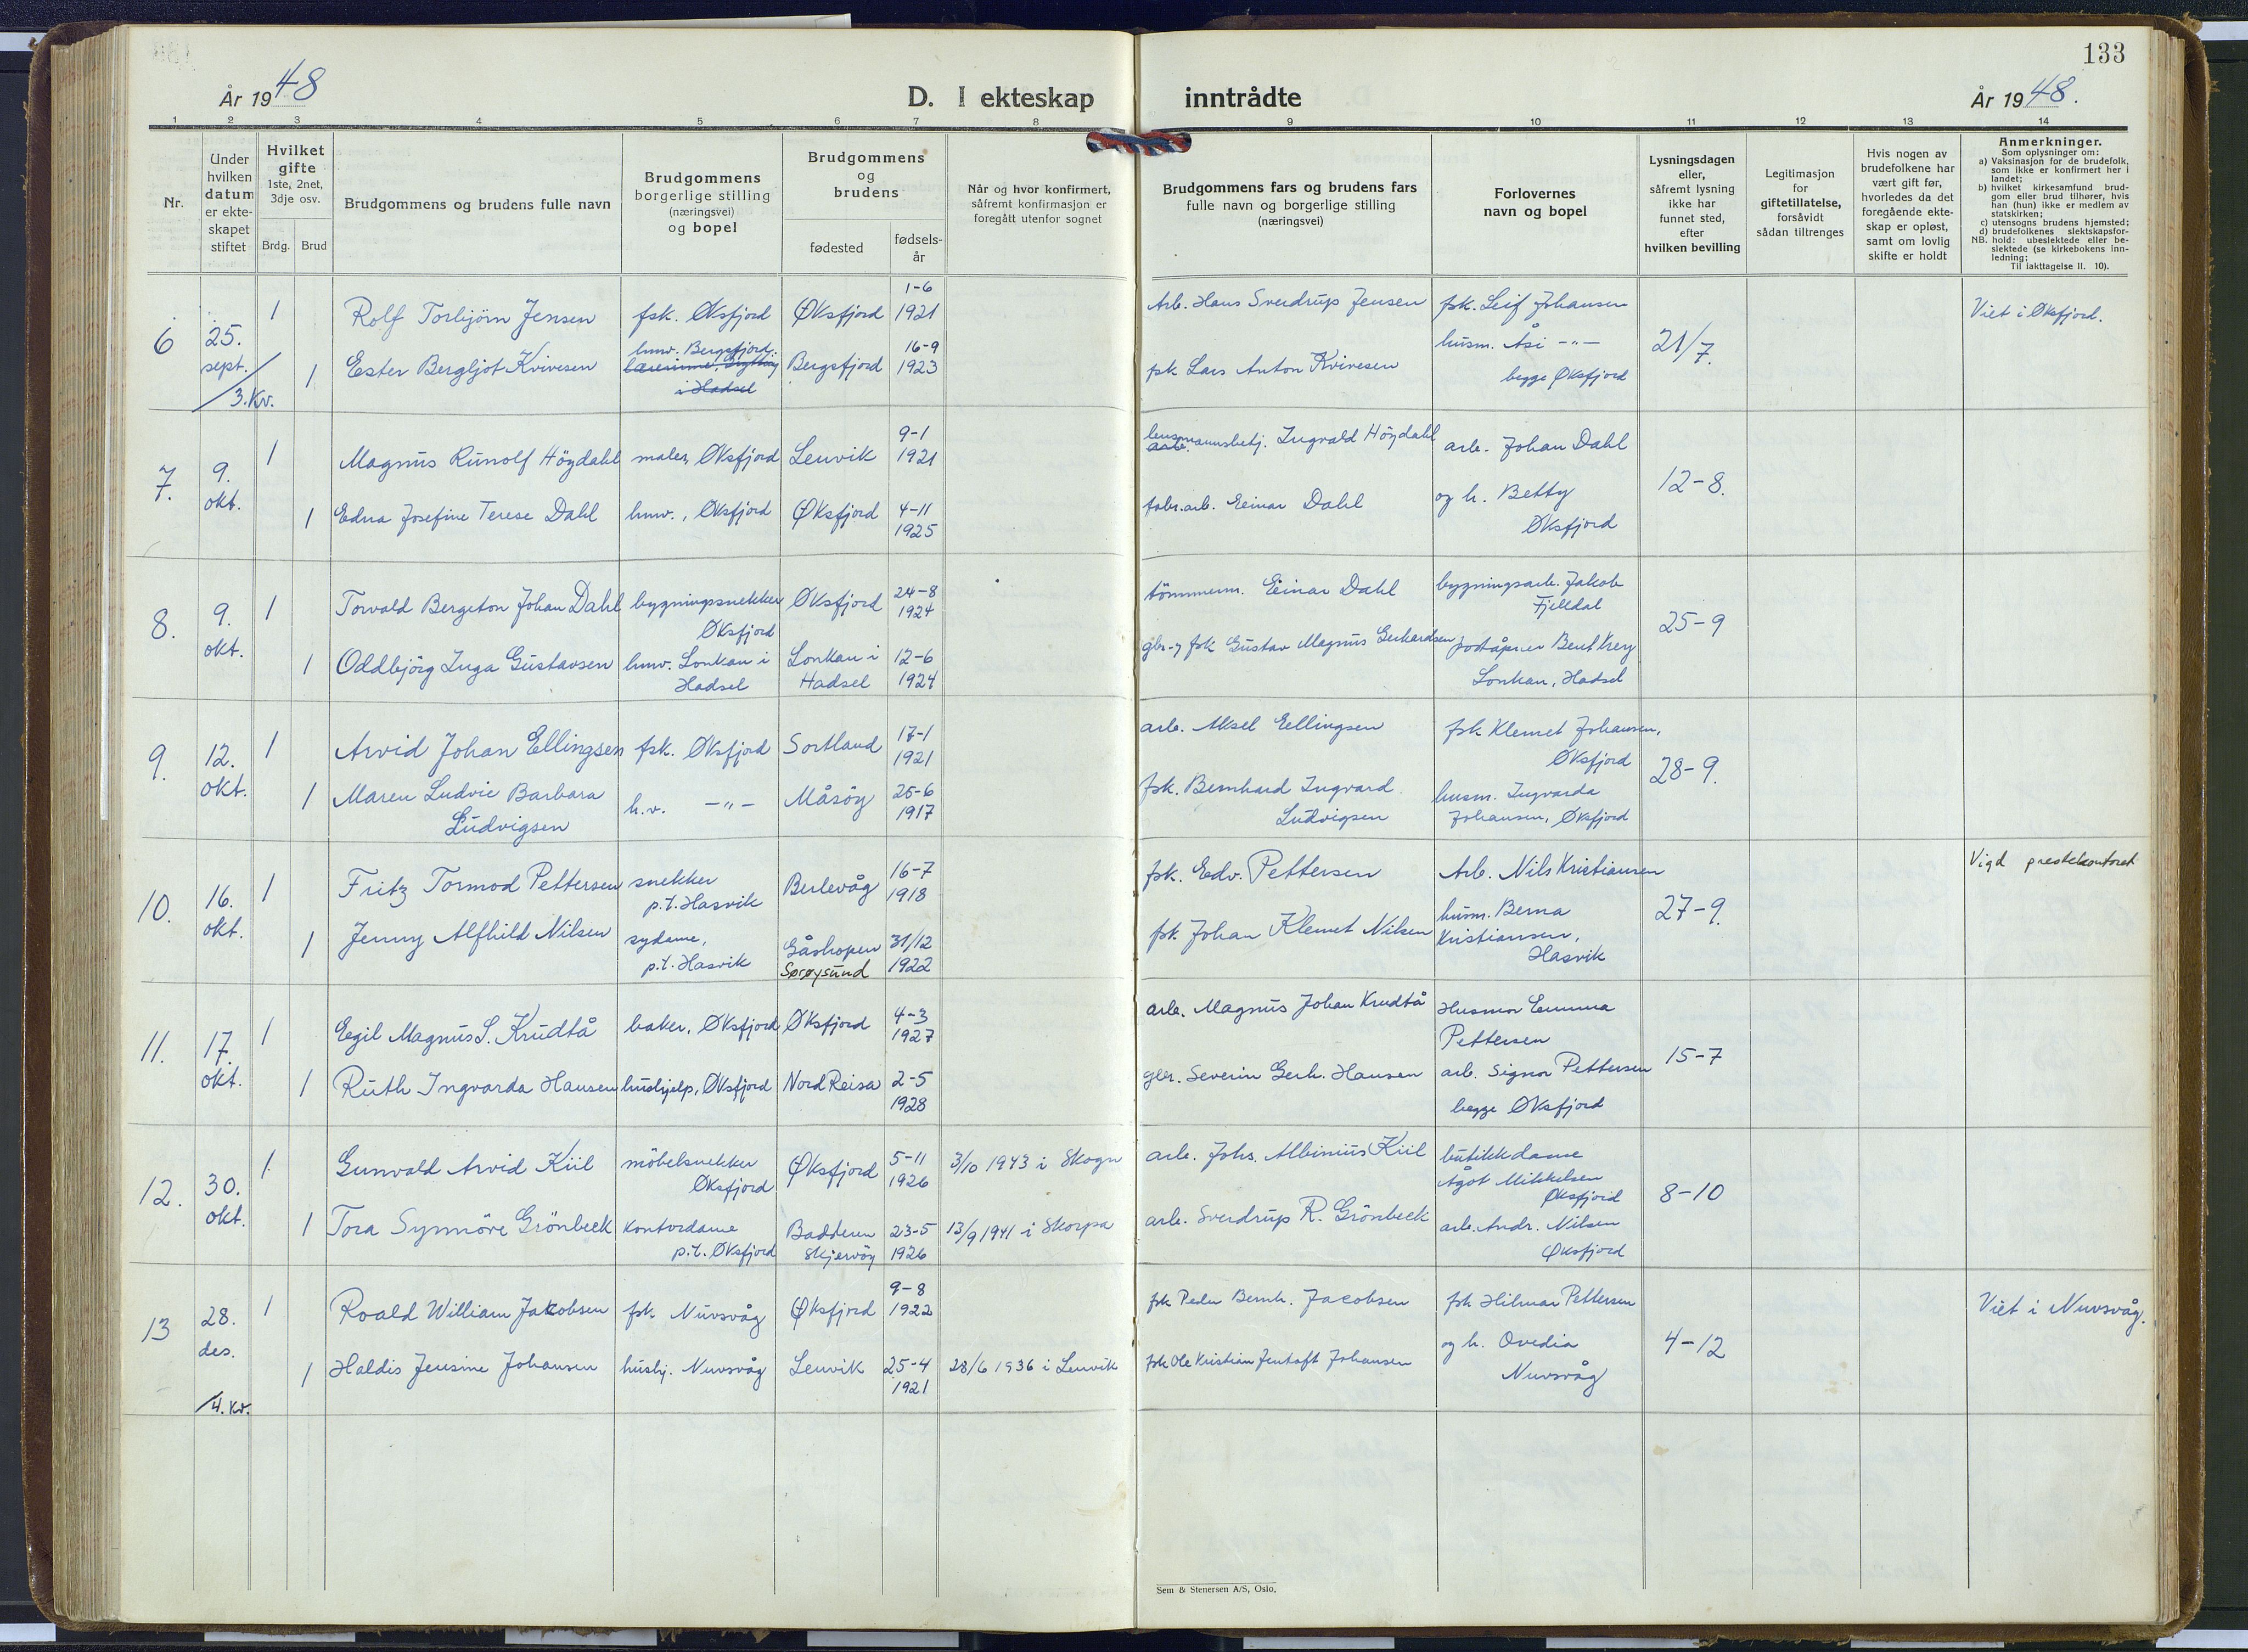 133
År 1948
D. I ekteskap inntrådte
År 1948.
1 2 3 4 5 6 7 8 9 10 11 12 13 14
Nr.
Under
hvilken
datum
er ekte-
skapet
stiftet
Hvilket
gifte
1ste, 2net,
3dje osv.
Brdg. Brud
Brudgommens og brudens fulle navn
Brudgommens
borgerlige stilling
(næringsvei)
og bopel
Brudgommens
og
brudens
fødested
fødsels-
år
Når og hvor konfirmert,
såfremt konfirmasjon er
foregått utenfor sognet
Brudgommens fars og brudens fars
fulle navn og borgerlige stilling
(næringsvei)
Forlovernes
navn og bopel
Lysningsdagen
eller,
såfremt lysning
ikke har
funnet sted,
efter
hvilken bevilling
Legitimasjon
for
giftetillatelse,
forsåvidt
sådan tiltrenges
Hvis nogen av
brudefolkene har
vært gift før,
hvorledes da det
foregående ekte-
skap er opløst,
samt om lovlig
skifte er holdt
Anmerkninger.
Som oplysninger om:
a) Vaksinasjon for de brudefolk,
som ikke er konfirmert her i
landet;
b) hvilket kirkesamfund brud-
gom eller brud tilhører, hvis
han (hun) ikke er medlem av
statskirken;
c) utensogns brudens hjemsted;
d) brudefolkenes slektskapsfor-
NB. hold: ubeslektede eller be-
slektede (se kirkebokens inn-
ledning;
Til iakttagelse II. 10).
6 25.
sept.
3. Kv.
1 Rolf Torbjörn Jensen fsk. Øksfjord Øksfjord 1-6
1921
Arb. Hans Sverdrup Jensen fsk. Leif Johansen
husm. Åsi -"-
begge Øksfjord
21/7.
Viet i Øksfjord.
1 Ester Bergljot Kvivesen hmv. Bergsfjord.
i Hadsel
Bergsfjord 16-9
1923
fsk Lars Anton Kvivesen
7. 9.
okt.
1 Magnus Runolf Höydahl maler, Øksfjord Lenvik 9-1
1921
lensmannsbetj. Ingvald Höydahl arb. Johan Dahl
12-8.
1 Edna Josefine Terese Dahl hmv., Øksfjord Øksfjord 4-11
1925
fabr.arb. Einar Dahl og h. Betty
Øksfjord
8. 9.
okt.
1 Torvald Bergeton Johan Dahl bygningssnekker
Øksfjord
Øksfjord 24-8
1924
tömmerm. Einar Dahl bygningsarb. Jakob
Fjelldal
25-9
1 Oddbjörg Inga Gustavsen hmv. Lonkan i
Hadsel
Lonkan i
Hadsel
12-6
1924
gbr. og fsk Gustav Magnus Gerhardsen poståpner Bent Krey
Lonkan, Hadsel
9. 12.
okt.
1 Arvid Johan Ellingsen fsk. Øksfjord Sortland 17-1
1921
arb. Aksel Ellingsen fsk Klemet Johansen,
Øksfjord
28-9.
1 Maren Ludvie Barbara
Ludvigsen
h.v. -"- Måsöy 25-6
1917
fsk. Bernhard Ingvard
Ludvigsen
husm. Ingvarda
Johansen, Øksfjord
10. 16.
okt.
1 Fritz Tormod Pettersen snekker
p.t. Hasvik
Berlevåg 16-7
1918
fsk. Edv. Pettersen Arb. Nils Kristiansen
27-9.
Vigd prestekontoret
1 Jenny Alfhild Nilsen sydame,
p.t. Hasvik
Gåshopen
Sørøysund
31/12
1922
fsk. Johan Klemet Nilsen husm. Berna
Kristiansen,
Hasvik
11. 17.
okt.
1 Egil Magnus S. Krudtå baker, Øksfjord Øksfjord 4-3
1927
arb. Magnus Johan Krudtå Husmor Emma
Pettersen
15-7
1 Ruth Ingvarda Hansen hushjelp, Øksfjord Nord Reisa 2-5
1928
gbr. Severin Gerh. Hansen arb. Signor Pettersen
begge Øksfjord
12. 30.
okt.
1 Gunvald Arvid Kiil möbelsnekker
Øksfjord
Øksfjord 5-11
1926
3/10 1943 i Skogn
arb. Johs. Albinius Kiil butikkdame
Ågot Mikkelsen
Øksfjord
8-10
1 Tora Synnöve Grönbeck kontordame
p.t. Øksfjord
Badderen
Skjervöy
23-5
1926
13/9 1941 i Skorpa
arb. Sverdrup R. Grönbeck arb. Andr. Nilsen
Øksfjord
13 28.
des.
4. kv.
1 Roald William Jakobsen fsk. Nuvsvåg Øksfjord 9-8
1922
fsk Peder Bernh. Jacobsen fsk Hilmar Pettersen
4-12
Viet i Nuvsvåg.
1 Haldis Jensine Johansen hushj. Nuvsvåg Lenvik 25-4
1921
28/6 1936 i Lenvik
fsk Ole Kristian Jentoft Johansen og h. Ovedia
Nuvsvåg
Sem & Stenersen A/S, Oslo.